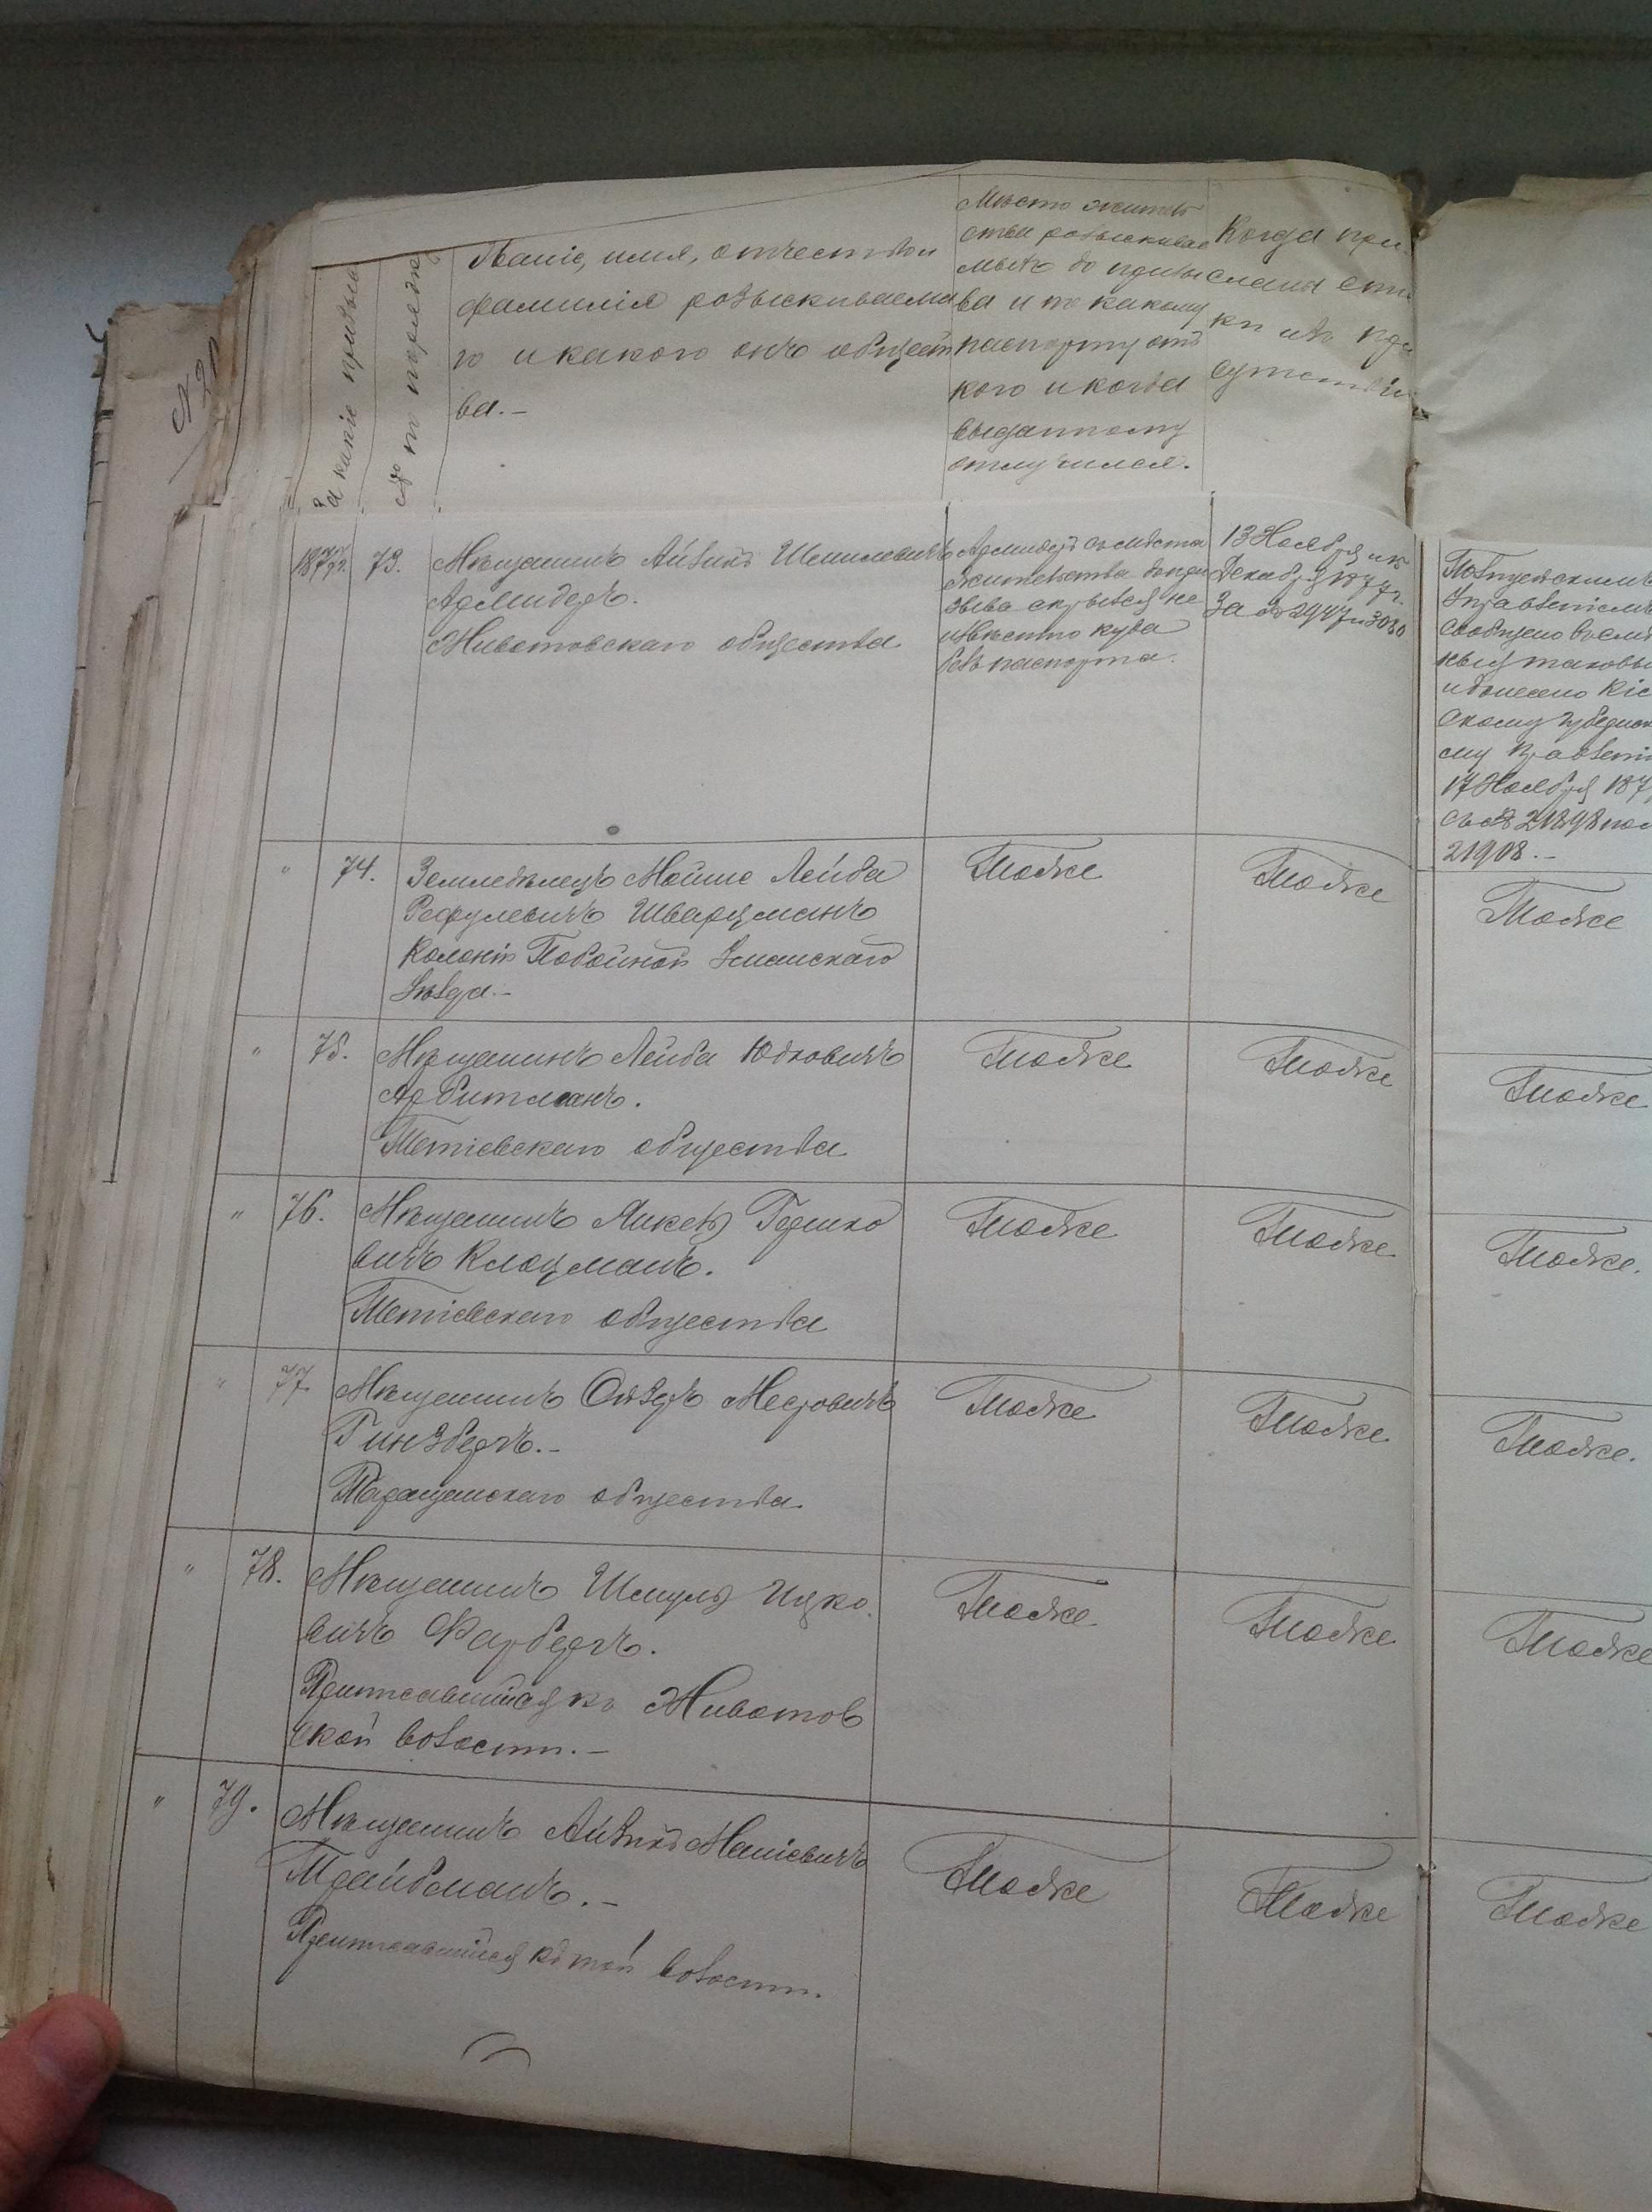 За какіе призывы
№ по порядку
Званіе, имя, отчество и
фамилія розыскиваема
го и какого онъ общест
ва.-
Мѣсто житель
ства розыскивае
мыхъ до призы
ва и по какому
паспорту отъ
кого и когда
выданному
отлучился.
Когда при
сланы спи
ки изъ при
сутствія
1877г. 73. Мѣщанинъ Айзикъ Шмилевичъ
Армидеръ.
Животовскаго общества
Армидеръ съ мѣста
жительства до при
зыва скрылся не
извѣстно куда
безъ паспорта.
13 Ноября и
Декабря 1877г.
За № 2947 и 3030
Полицейскимъ
Управленіемъ
сообщено
таковы
и донесено Кіе
скому Губернск
му Правлені
17 Ноября 187
съ № 21898 по
21908.-
" 74. Земледѣлецъ Мойше Лейба
Рафулевичъ Шварцманъ
Колоніи Побойной Уманскаго
Уѣзда.-
Тоже
Тоже
Тоже
" 75. Мѣщанинъ Лейба Юдковичъ
Арбитманъ.
Тетіевскаго общества
Тоже
Тоже
Тоже
" 76. Мѣщанинъ Янкель Гершко
вичъ Клоцманъ.
Тетіевскаго общества
Тоже
Тоже
Тоже.
" 77. Мѣщанинъ Ойзеръ Меровичъ
Гинзбергъ.-
Таращанскаго общества.
Тоже
Тоже.
Тоже.
" 78. Мѣщанинъ Шмуль Ицко
вичъ Фарбергъ.
Приписавшійся къ Животов
ской волости.-
Тоже
Тоже
Тоже
" 79. Мѣщанинъ Айзикъ Маніевичъ
Трайбманъ.-
Приписавшійся къ той волости.
Тоже
Тоже
Тоже